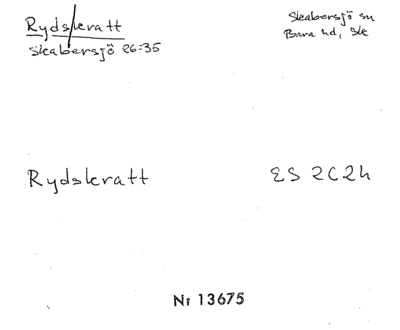 Rydskratt
Skabersjö 26:35
Skabersjö sn
Bara hd, Sk
Rydskratt
ES 2C2h
Nr 13675